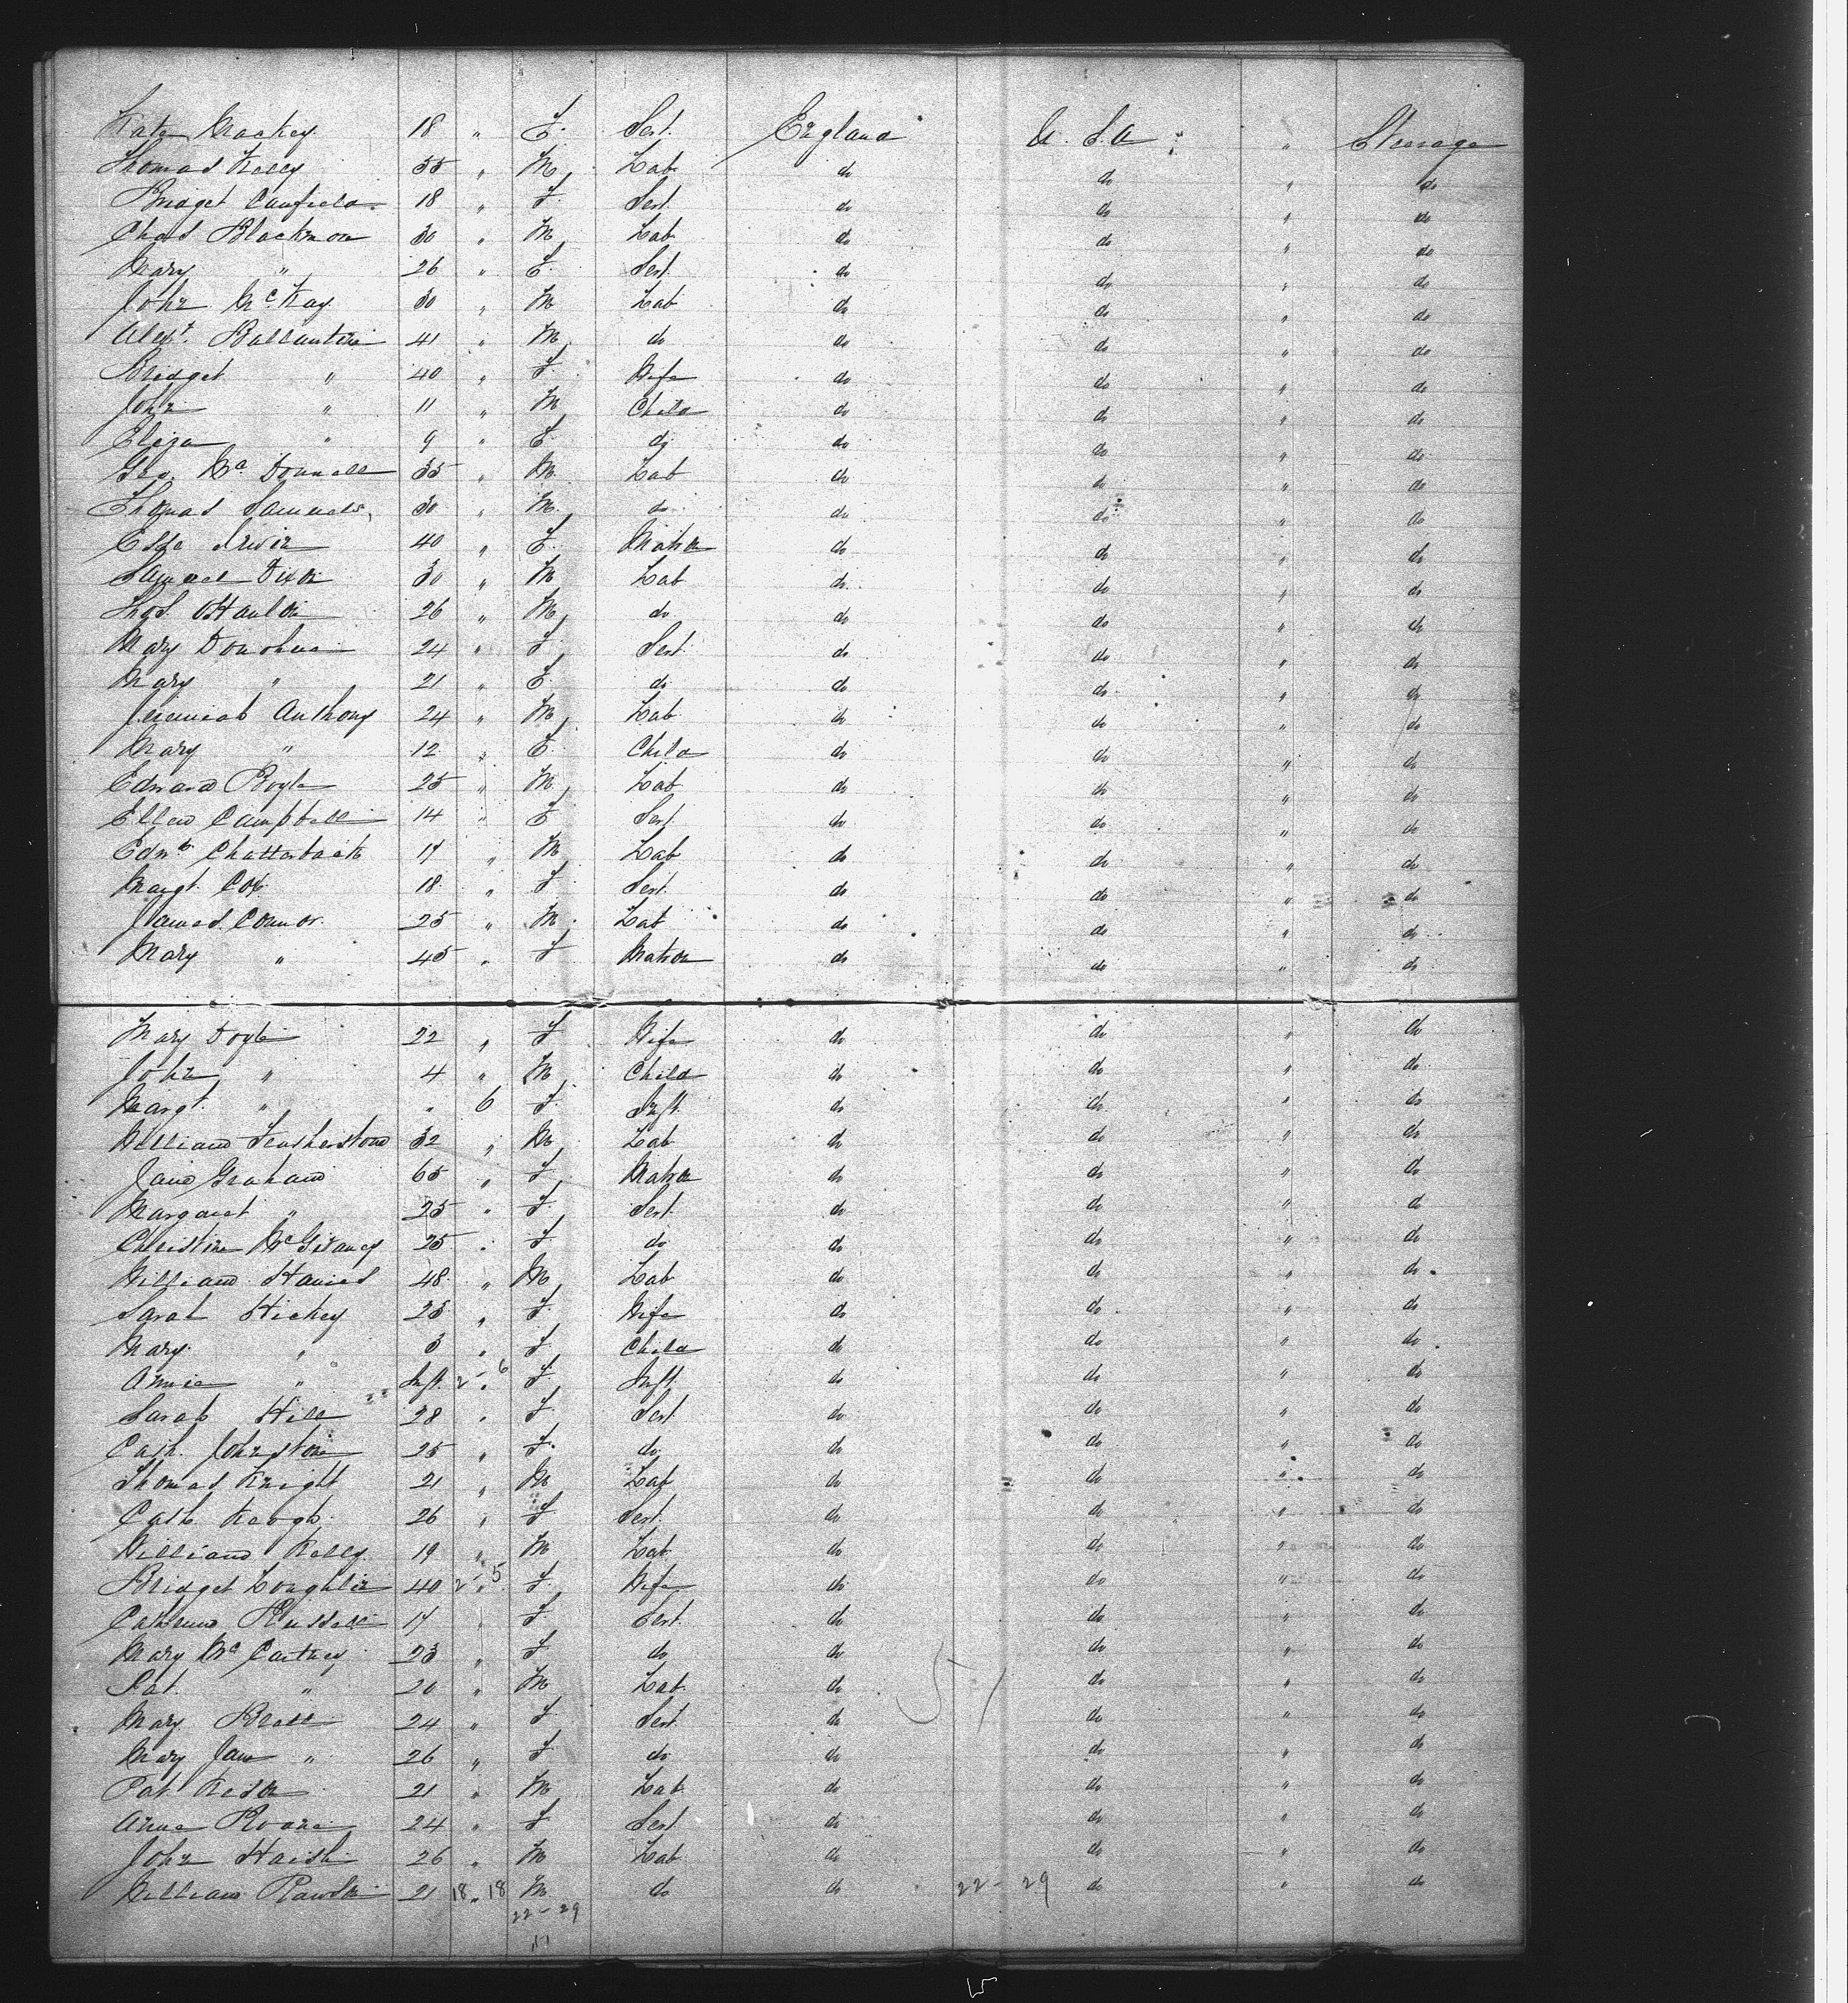 Kate Mackey 18 " F. Sert. England U. S. A " Steerage
Thomas Kelly 35 " M Lab do do " do
Bridget Caufield 18 " F. Sert. do do " do
Chas Blackmore 30 " M Lab do do " do
Mary " 26 " F. Sert. do do " do
John McKay 30 " M Lab do do " do
Alext. Ballantine 41 " M do do do " do
Bridget " 40 " F. Wife do do " do
John " 11 " M Child do do " do
Eliza " 9 " F. do do do " do
Geo. Mc Donnell 35 " M. Lab do do " do
Thomas Samuels 30 " M. do do do " do
Irwin 40 " F. Matron do do " do
Samuel Dixon 30 " M Lab do do " do
Thos. 26 " M do do do " do
Mary Donohue 24 " F. Sert. do do " do
Mary " 21 " F. do do do " do
Jeremiah Anthony 24 " M Lab do do " do
Mary " 12 " F. Child do do " do
Edward Boyle 25 " M Lab do do " do
Ellen Campbell 14 " F Sert. do do " do
Edwd. 17 " M Lab do do " do
Margt. Cox 18 " F Sert. do do " do
James Connor 25 " M Lab do do " do
Mary " 45 " F Matron do do " do
Mary Doyle 22 " F Wife do do " do
John " 4 " M Child do do " do
Margt. " " 6 F. Inft. do do " do
William Featherstone 32 " M Lab do do " do
Jane Graham 65 " F Matron do do " do
Margaret " 25 " F Sert. do do " do
Christina 25 " F do do do " do
William 48 " M Lab do do " do
Sarah Hickey 25 " F Wife do do " do
Mary " 3 " F Child do do " do
Annie " Inft. 2 - 6 F Inft. do do " do
Sarah Hill 28 " F Sert. do do " do
Cath. Johnstone 25 " F. do do do " do
Thomas Knight 21 " M Lab do do " do
Cath Keogh 26 " F Sert. do do " do
William Kelly 19 " M Lab do do " do
Bridget Loughlin 40 2 - 5 F Wife do do " do
Catherine Russell 17 " F Sert. do do " do
Mary Mc Cartney 23 " F do do do " do
Pat. " 20 " M Lab. do do " do
Mary 24 " F Sert. do do " do
Mary Jane " 26 " F do do do " do
Pat 21 " M Lab do do " do
Anne 24 " F Sert. do do " do
John 26 " M Lab do do " do
William 21 18 " 18 M do do 22 - 29 do " do
22 - 29